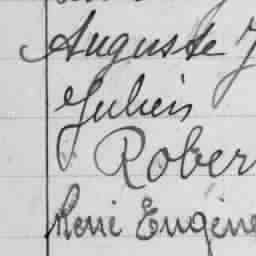 Auguste J
Julien
Rober
René Eugène